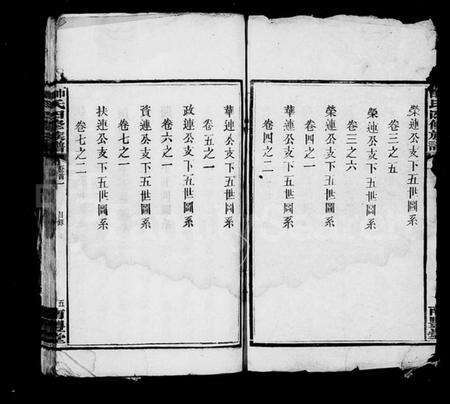 榮連公支下五世圖系
卷三之五
榮連公支下五世圖系
卷三之六
榮連公支下五世圖系
卷四之一
華連公支下五世圖系
卷四之二
華連公支下五世圖系
卷五之一
政連公支下五世圖系
卷六之一
資連公支下五世圖系
卷七之一
扶連公支下五世圖系
卷七之二
氏四修族譜
目錄
五